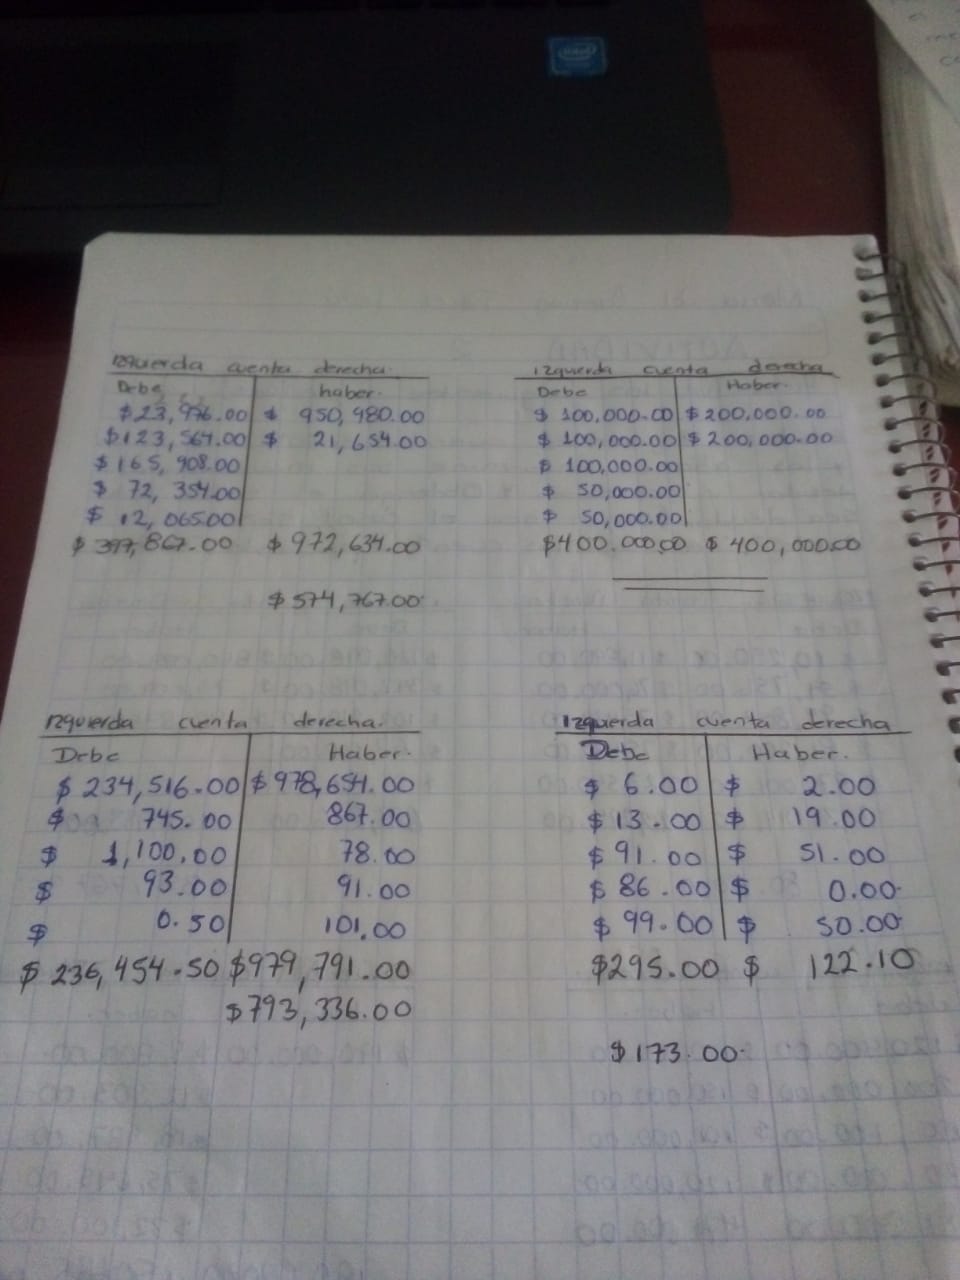 intel
Izquierda cuenta derecha.
Debe haber.
$23,976.00 $ 950,980.00
$123,564.00 $ 21,654.00
$165,908.00
$ 72,354.00
$ 12,065.00
$397,867.00 $972,634.00
$574,767.00
Izquierda cuenta derecha
Debe Haber.
$ 100,000.00 $200,000.00
$ 100,000.00 $200,000.00
$ 100,000.00
$ 50,000.00
$ 50,000.00
$400.000.00 $ 400,000.00
Izquierda cuenta derecha.
Debe Haber.
$ 234,516.00 $978,654.00
$ 745.00 867.00
$ 1,100.00 78.00
$ 93.00 91.00
$ 0.50 101.00
$ 236,454.50 $979,791.00
$793,336.00
Izquierda cuenta derecha
Debe Haber.
$ 6.00 $ 2.00
$ 13.00 $ 19.00
$ 91.00 $ 51.00
$ 86.00 $ 0.00
$ 99.00 $ 50.00
$295.00 $ 122.10
$173.00